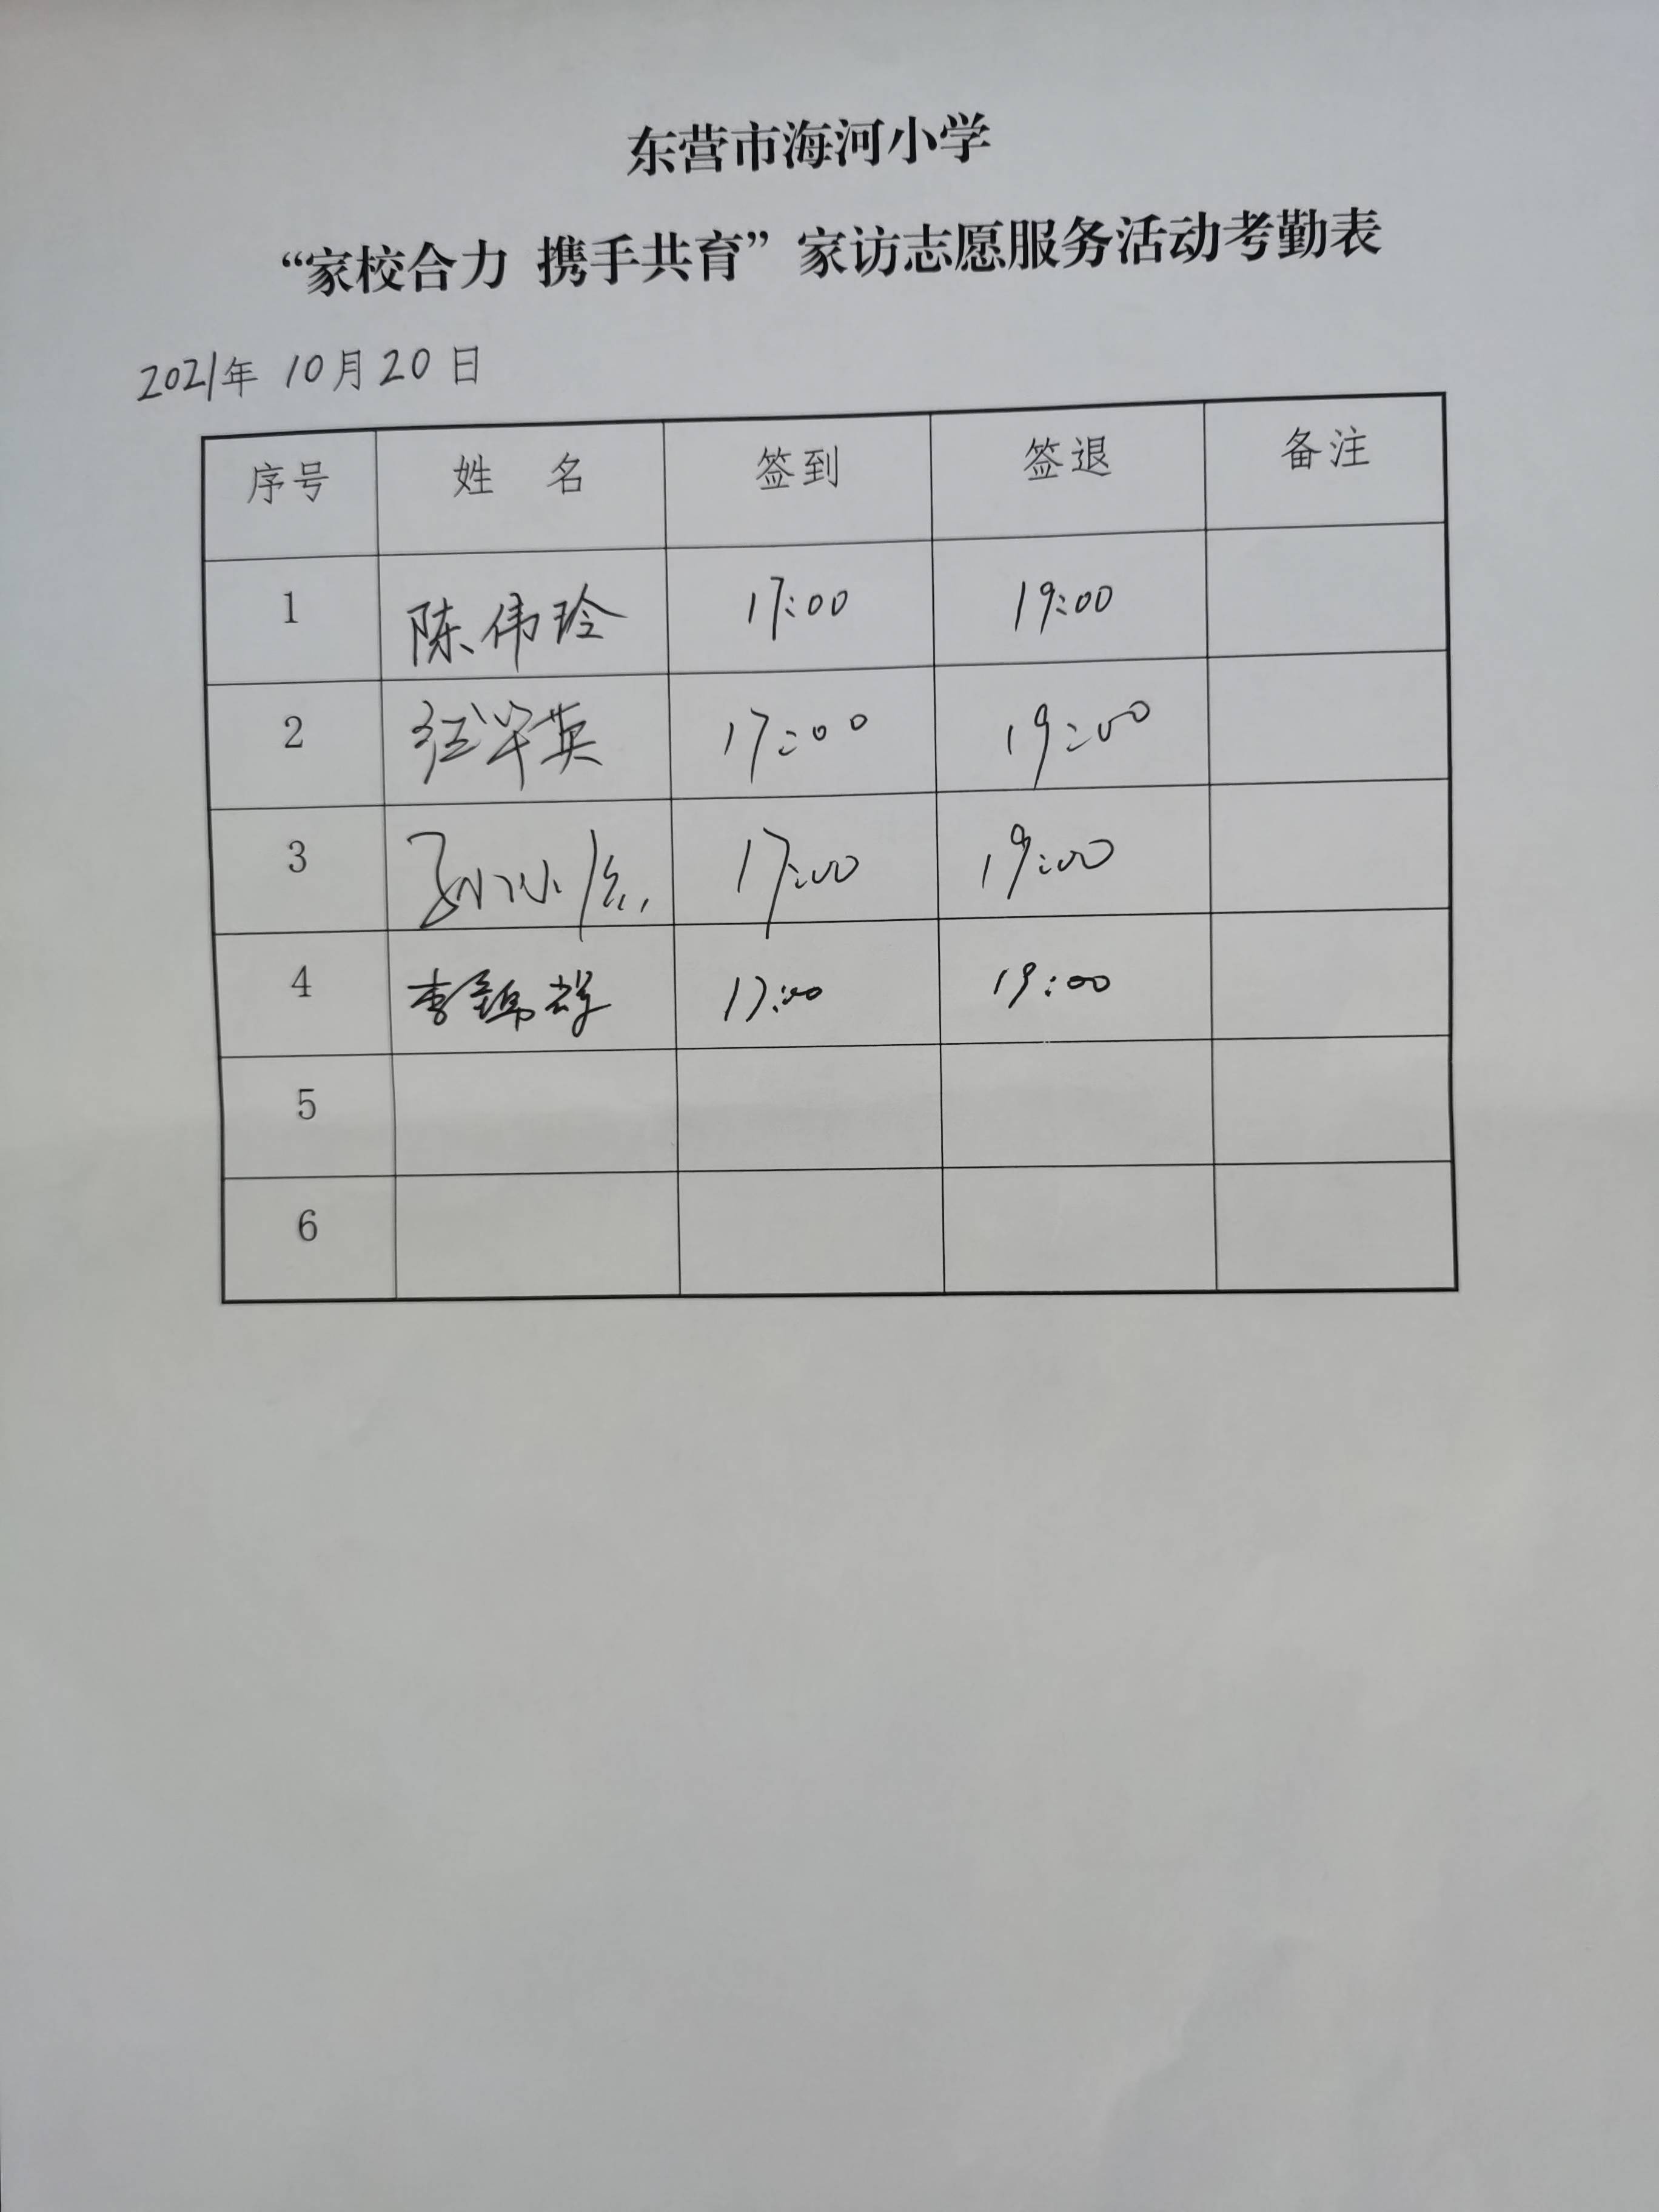 东营市海河小学
“家校合力 携手共育”家访志愿服务活动考勤表
2021年 10月20日
序号 姓 名 签到 签退 备注
1 陈伟玲 17:00 19:00
2 17:00 19:00
3 孙小 17:00 19:00
4 李锦 17:00 19:00
5
6